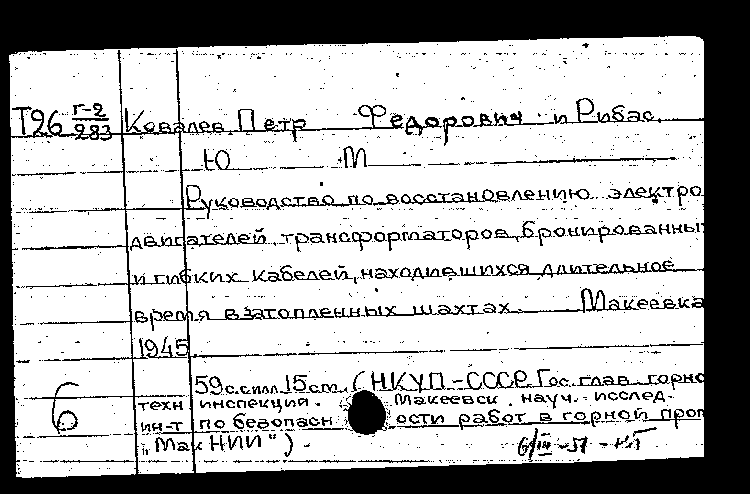 Т26 Г-2/283 Ковалев, Петр Федорович и Рибас,
Ю М
Руководство по восстановлению электро
двигателей, трансформаторов, бронированны
и гибких кабелей, находившихся длительное
время в затопленных шахтах. Макеевка
1945.
59 с. с илл. 15 см. (НКУП-СССР. Гос. глав. горно
6 техн инспекция. Макеевск. науч.-исслед.
ин-т по безопасн ости работ в горной про
"МакНИИ").
6/III-51